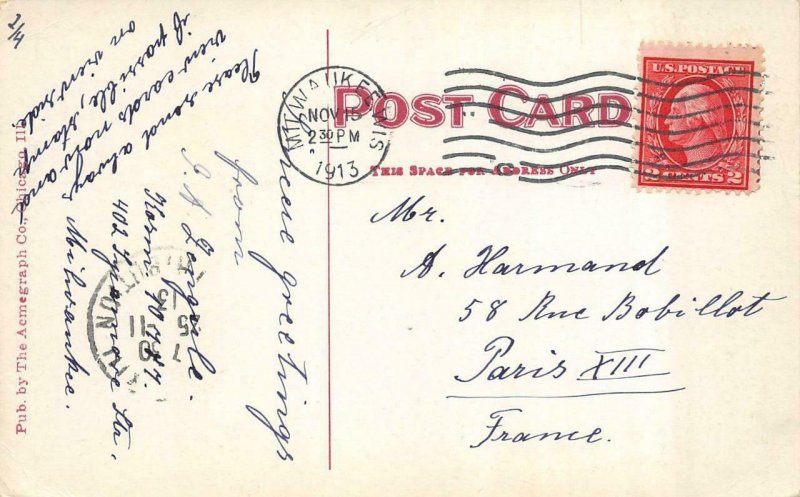 2/4
Please send always
view cards now and
if possible, stamp
on viewside.
Sincere greetings
from
402 Sycamore Sta.
Milwaukee.
Pub. by The Acmegraph Co., Chicago, Ill.
POST CARD
THIS SPACE FOR ADDRESS ONLY
MILWAUKEE, WIS
NOV 15
2 30 PM
1913
U.S. POSTAGE
2 CENTS 2
Mr.
A. Harmand
58 Rue Bobillot
Paris XIII
France.